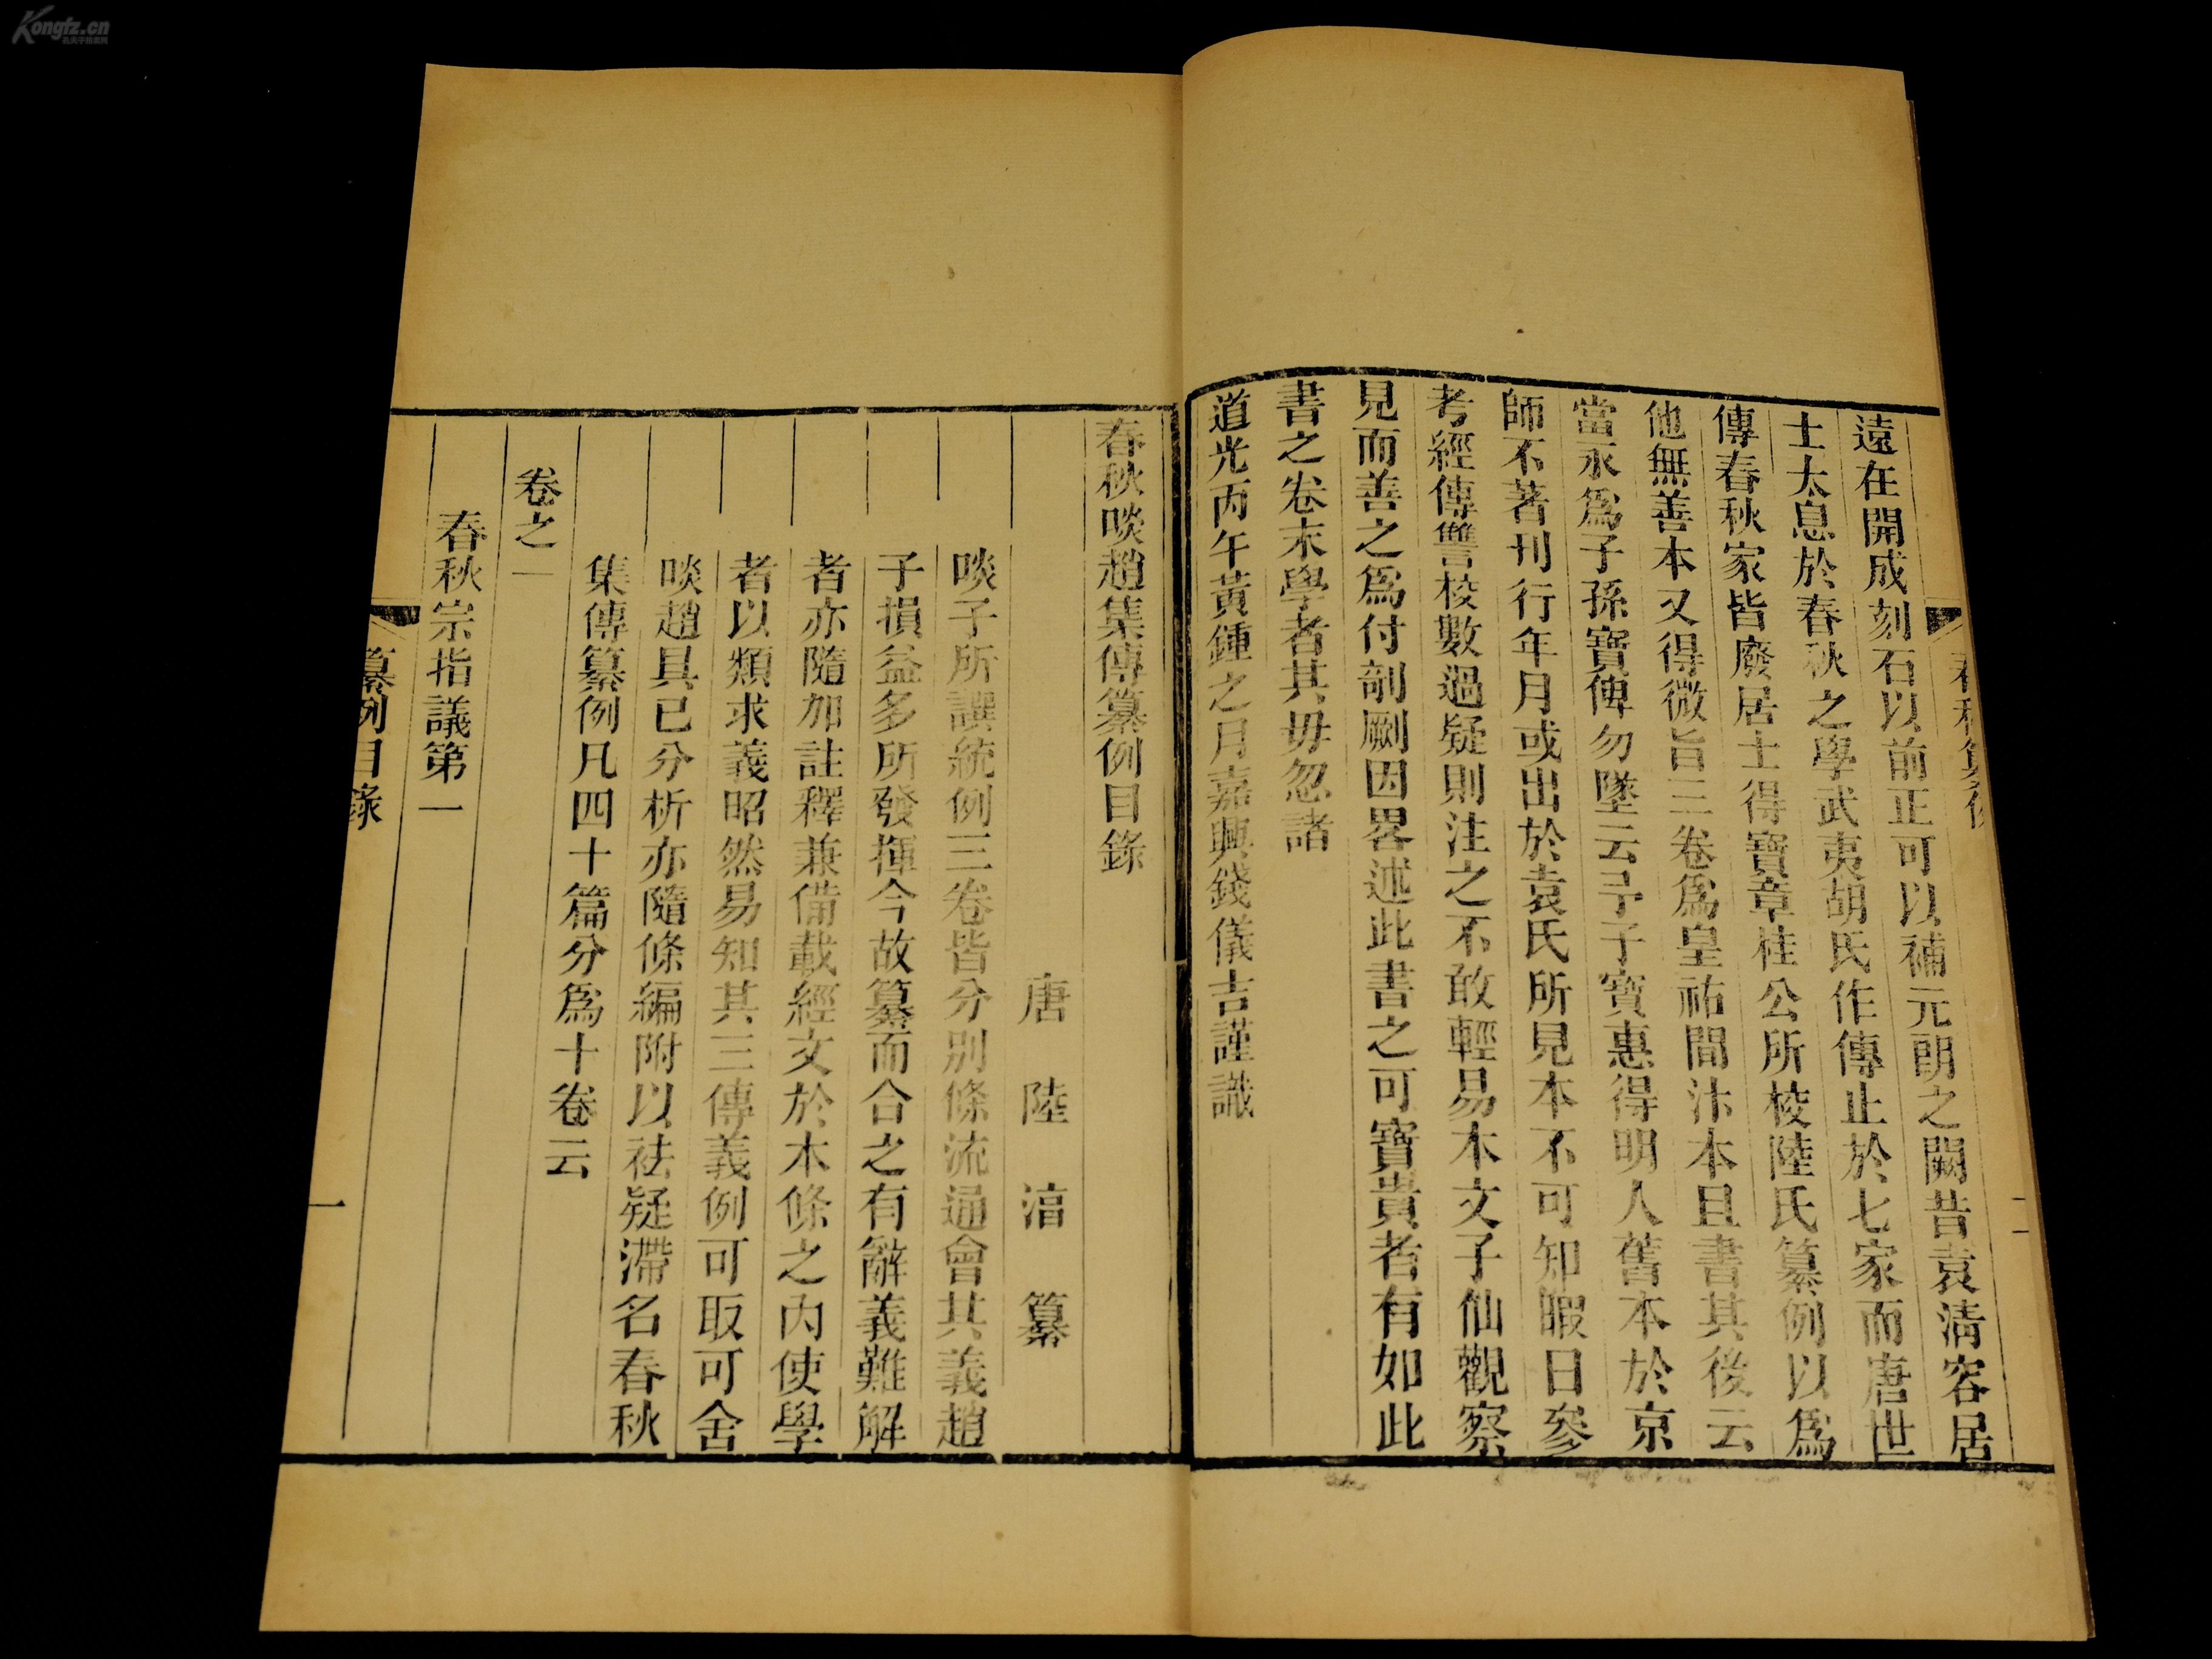 遠在開成刻石以前正可以補元朗之闕昔袁淸容居
士太息於春秋之學武夷胡氏作傳止於七家而唐世
傳春秋家皆廢居士得寶章桂公所校陸氏纂例以爲
他無善本又得微旨三卷爲皇祐間汴本且書其後云
當永爲子孫寶俾勿墜云予子寶惠得明人舊本於京
師不著刊行年月或出於袁氏所見本不可知暇日參
考經傳讐校數過疑則注之不敢輕易本文子仙觀察
見而善之爲付剞劂因畧述此書之可寶貴者有如此
書之卷末學者其毋忽諸
道光丙午黃鍾之月嘉興錢儀吉謹識
春秋啖趙集傳纂例目錄
唐 陸 淳 纂
啖子所譔統例三卷皆分別條流通會其義趙
子損益多所發揮今故纂而合之有辭義難解
者亦隨加註釋兼備載經文於本條之內使學
者以類求義昭然易知其三傳義例可取可舍
啖趙具已分析亦隨條編附以祛疑滯名春秋
集傳纂例凡四十篇分爲十卷云
卷之一
春秋宗指議第一
纂例目錄
一
Kongfz.cn